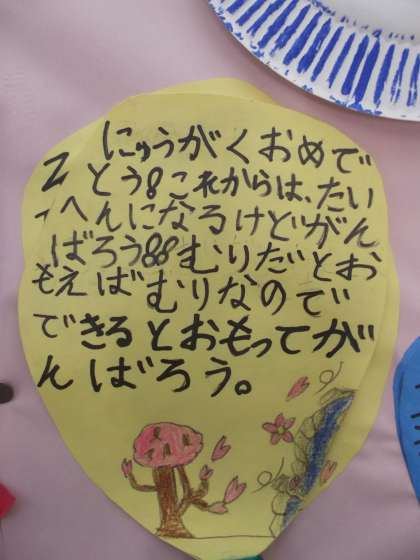 にゅうがくおめで
とう!これからは、たい
へんになるけどがん
ばろう!!むりだとお
もえばむりなので
できるとおもってが
んばろう。